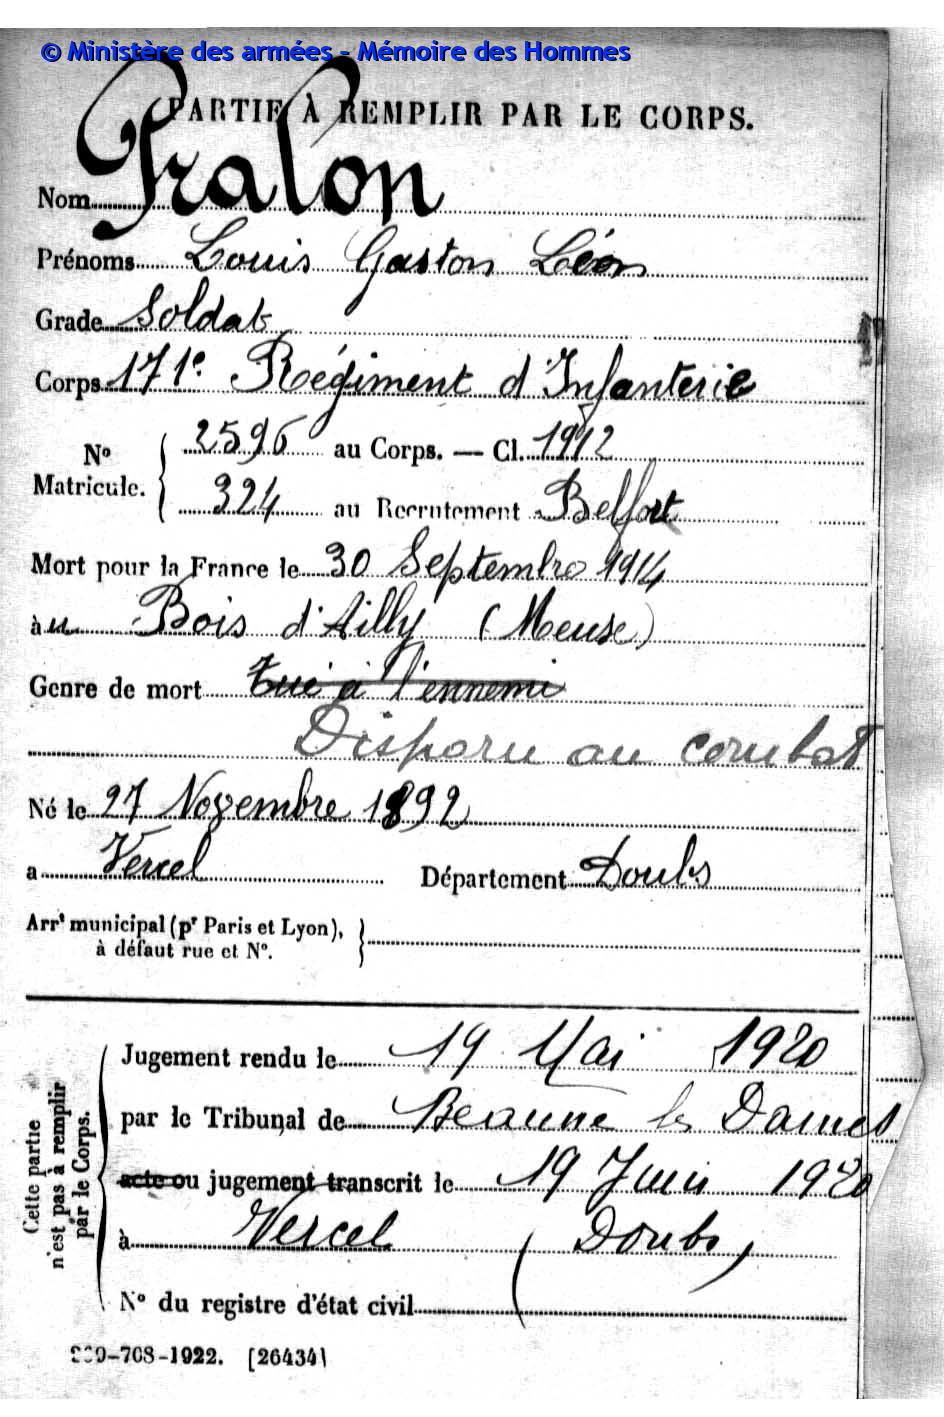 © Ministère des armées - Mémoire des Hommes
PARTIE À REMPLIR PAR LE CORPS.
Nom Pralon
Prénoms Louis Gaston Léon
Grade Soldat
Corps 171e Régiment d'Infanterie
Nº Matricule. { 2596 au Corps. — Cl. 1912
324 au Recrutement Belfort
Mort pour la France le 30 Septembre 1914
àu Bois d'Ailly (Meuse)
Genre de mort Tué à l'ennemi
Disparu au combat
Né le 27 Novembre 1892
a Vercel Département Doubs
Arrt municipal (pr Paris et Lyon),
à défaut rue et Nº.
Cette partie
n'est pas à remplir
par le Corps.
Jugement rendu le 19 Mai 1920
par le Tribunal de Beaume les Dames
acte ou jugement transcrit le 19 Juin 1920
à Vercel (Doubs)
Nº du registre d'état civil
-708-1922. [26434]